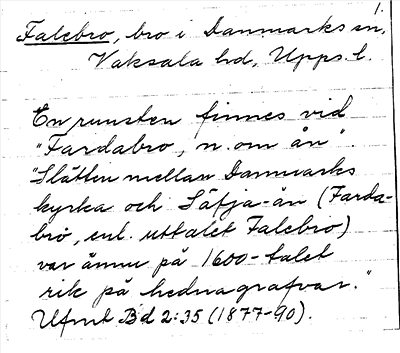 1.
Falebro, bro i Danmarks sn,
Vaksala hd, Upps. l.
En runsten finnes vid
"Fardabro, n. om ån".
"Slätten mellan Danmarks
kyrka och Säfja-ån (Farda-
bro, enl. uttalet Falebro)
var ännu på 1600-talet
rik på hednagrafvar."
Ufmt Bd 2:35 (1877-90).